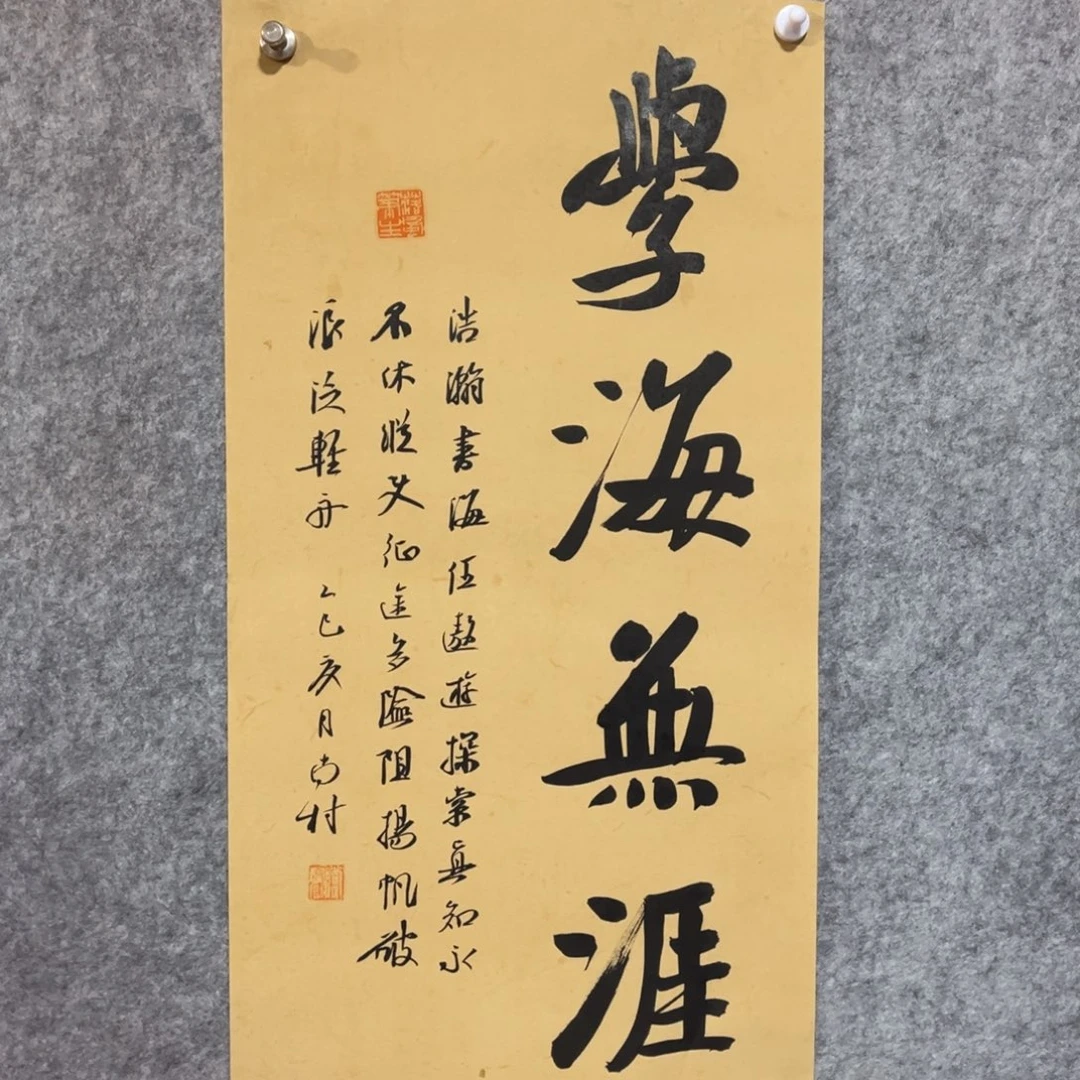 學海無涯
浩瀚書海任遨遊探索真知永
不休縱使征途多險阻揚帆破
浪泛輕舟 乙巳亥月尚村